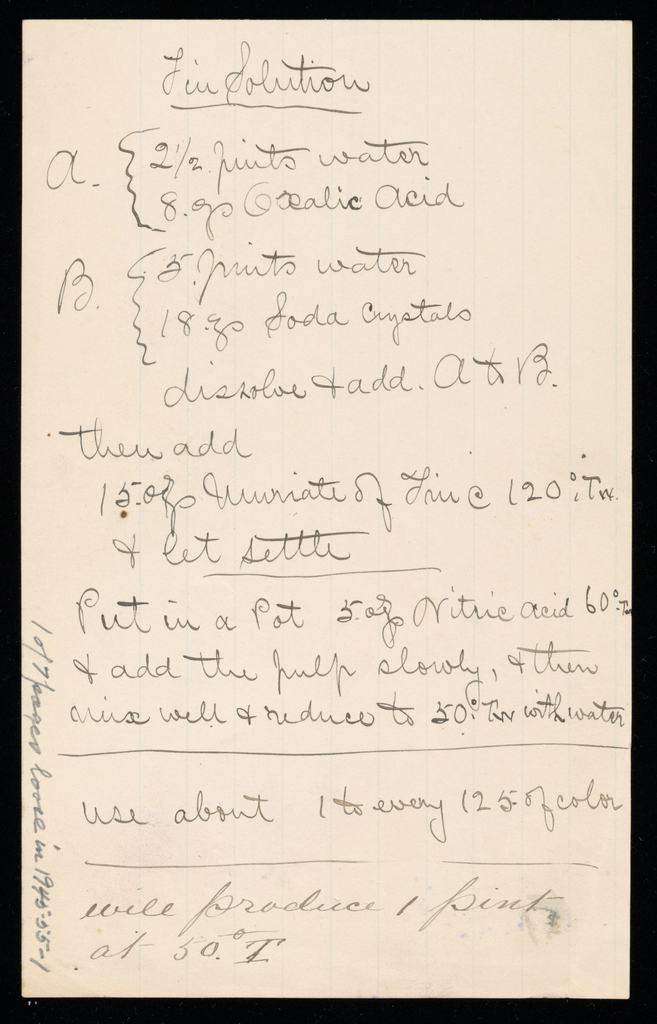 Tin Solution
A. { 2 1/2 pints water
8. ozs Oxalic Acid
B. { 5. pints water
18. ozs Soda Crystals
dissolve & add. A to B.
then add
15 ozs Muriate of Tin @ 120°. Tw.
& let settle
Put in a Pot 5 ozs Nitric acid 60°. Tw
& add the pulp slowly, & then
mix well & reduce to 50°. Tw with water
use about 1 to every 125 of color
will produce 1 pint
at 50.° T
1 of 7 pages loose in 1945-55-1